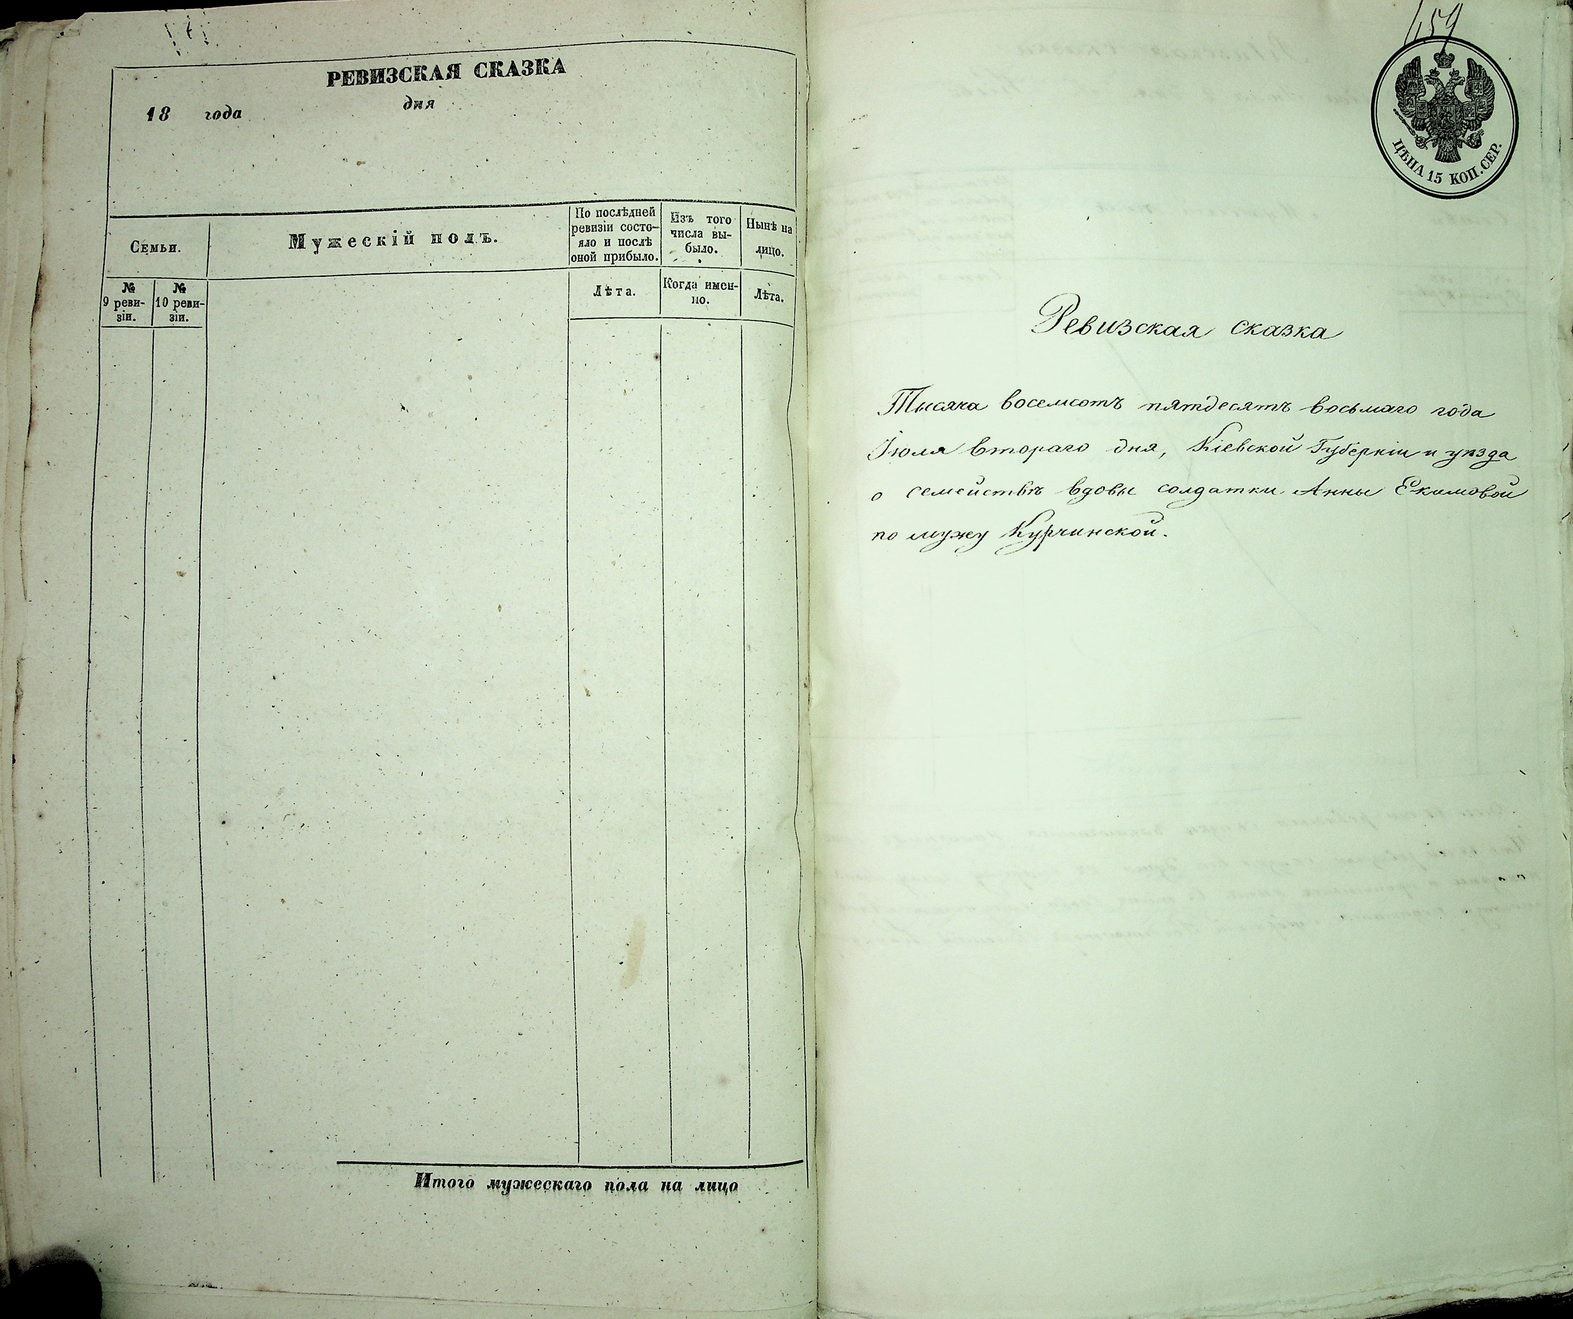 РЕВИЗСКАЯ СКАЗКА
18 года дня
Семьи.
Мужескій полъ.
По послѣдней
ревизіи состо-
яло и послѣ
оной прибыло.
Изъ того
числа вы-
было.
Нынѣ на
лицо.
№
9 реви-
зіи.
№
10 реви-
зіи.
Лѣта.
Когда имен-
но.
Лѣта.
Итого мужескаго пола на лицо
459
ЦѢНА 15 КОП. СЕР.
Ревизская сказка
Тысяча восемсотъ пятдесятъ восьмаго года
Іюля втораго дня, Кіевской Губерніи и уѣзда
о семействѣ вдовы солдатки Анны Екимовой
по мужу Курчинской.